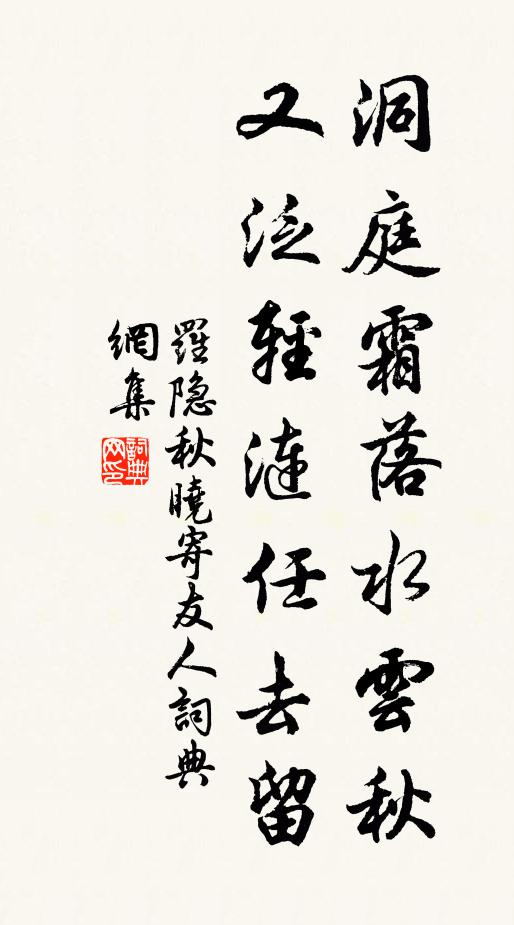 洞庭霜落水雲秋
又泛輕漣任去留
羅隐秋曉寄友人詞典
網集
詞典
网印